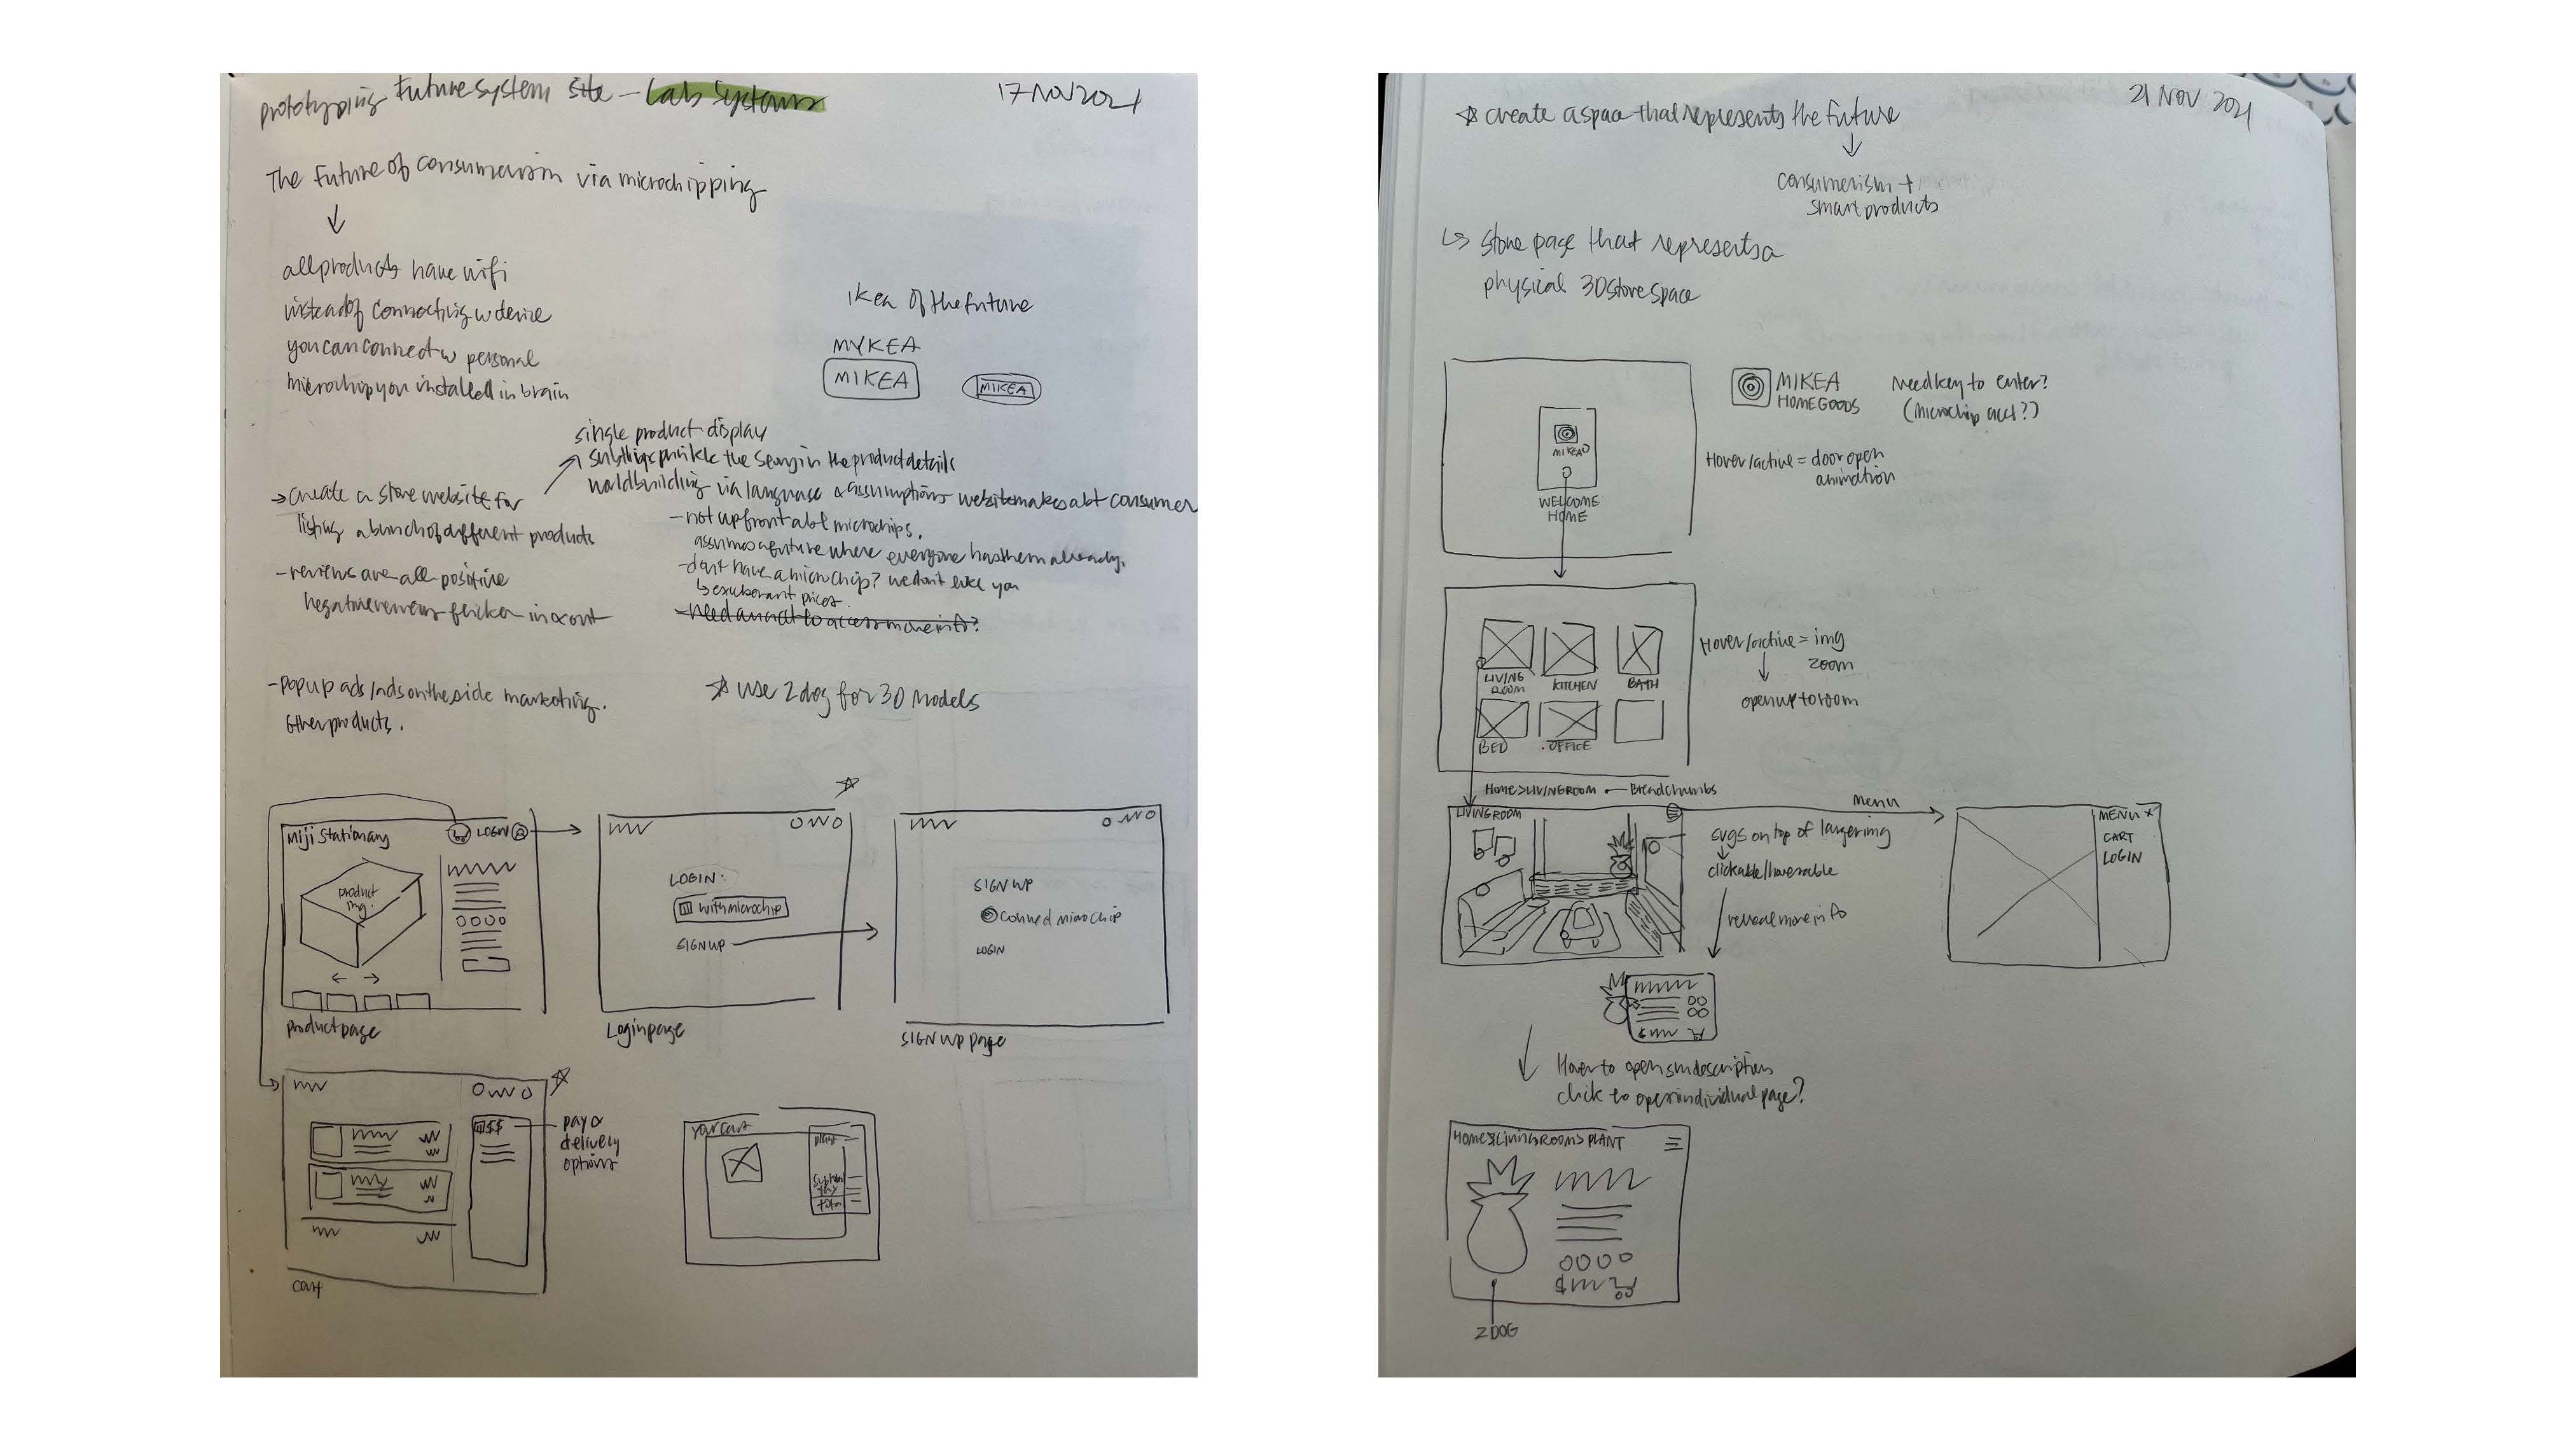 prototyping future system site – Lab Systems
17 NOV 2021
The future of consumerism via microchipping
all products have wifi
instead of connecting w device
you can connect w personal
microchip you installed in brain
ikea of the future
MYKEA
MIKEA
MIKEA
single product display
the story in the product details
worldbuilding via language & assumptions website makes abt consumer
→ create a store website for
listing a bunch of different products
- not upfront abt microchips.
assumes a future where everyone has them already.
- don't have a microchip? we don't like you
↳ exuberant prices.
- need an acct to access more info?
- reviews are all positive
negative reviews flicker in & out
- pop up ads/ads on the side marketing
other products.
☆ use zdog for 3D models
Miji Stationary
LOGIN
product
img.
product page
LOGIN:
with microchip
SIGN UP
Login page
SIGN UP
connect microchip
LOGIN
SIGN UP page
$$
pay &
delivery
options
cart
your cart
subtotal
tax
total
21 NOV 2021
☆ create a space that represents the future
consumerism +
smart products
↳ store page that represents a
physical 3D store space
MIKEA
WELCOME
HOME
MIKEA
HOMEGOODS
Need key to enter?
(microchip acct?)
Hover/active = door open
animation
LIVING
ROOM
KITCHEN
BATH
BED
OFFICE
Hover/active = img
zoom
open up to room
HOME>LIVINGROOM
Breadcrumbs
LIVINGROOM
Menu
svgs on top of larger img
clickable/hoverable
reveal more info
MENU X
CART
LOGIN
Hover to open sm description
click to open individual page?
HOME>LIVINGROOM>PLANT
$
ZDOG